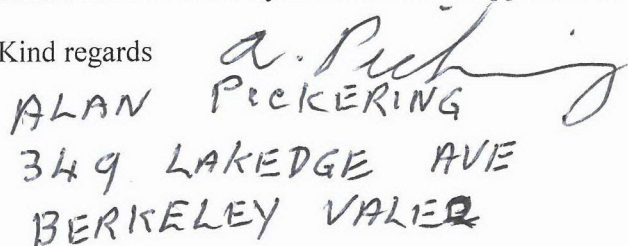 Kind regards a. Pickering
ALAN PICKERING
349 LAKEDGE AVE
BERKELEY VALE